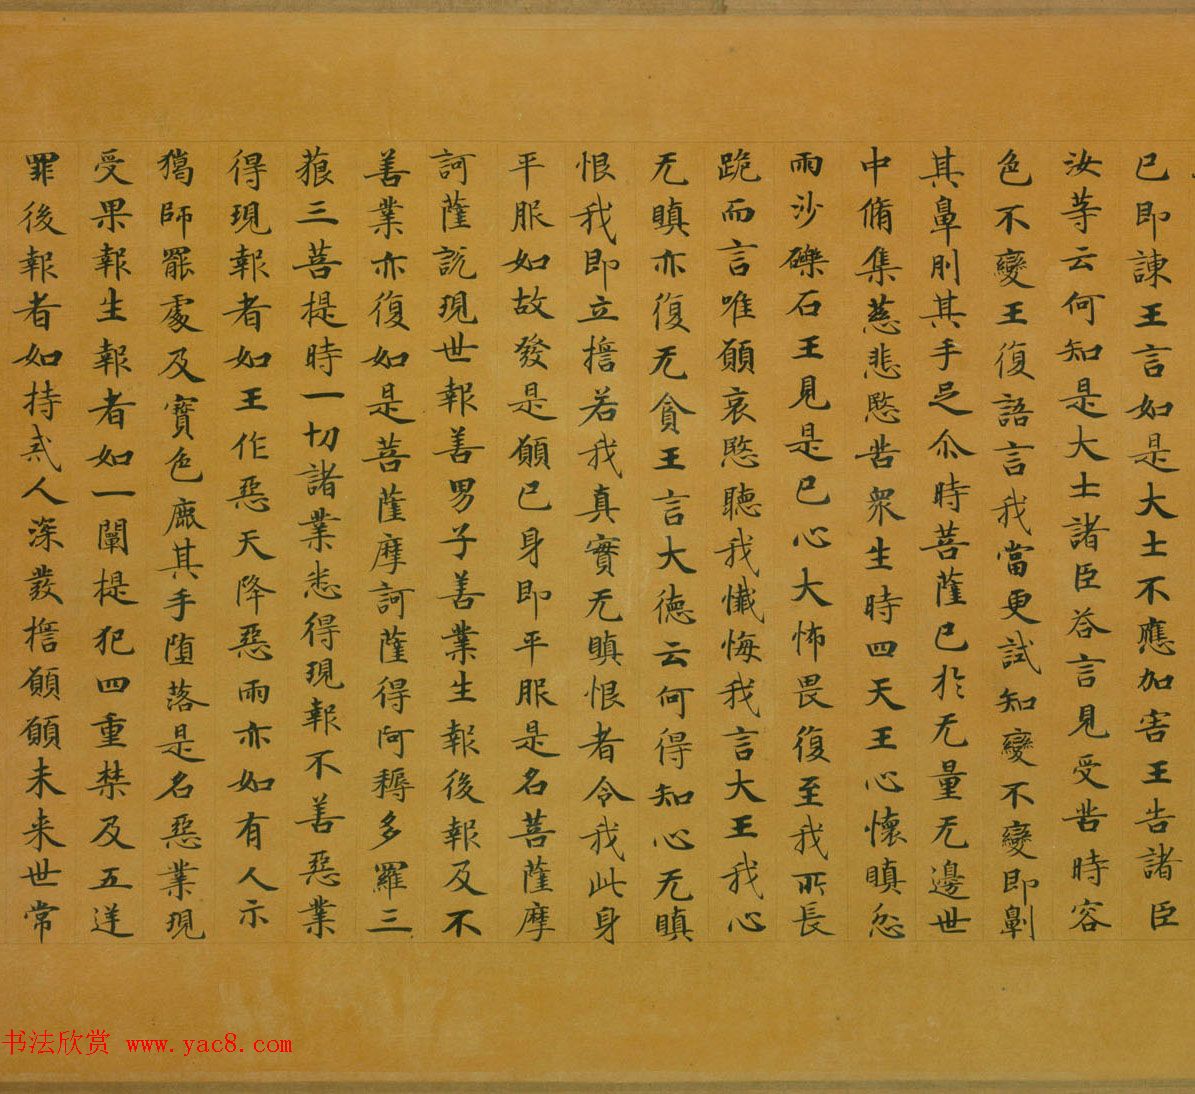 已即諫王言如是大士不應加害王告諸臣
汝等云何知是大士諸臣荅言見受苦時容
色不變王復語言我當更試知變不變即劓
其鼻刖其手足尒時菩薩已於无量无邊世
中脩集慈悲愍苦衆生時四天王心懷瞋忿
雨沙礫石王見是已心大怖畏復至我所長
跪而言唯願哀愍聽我懺悔我言大王我心
无瞋亦復无貪王言大德云何得知心无瞋
恨我即立擔若我真實无瞋恨者令我此身
平服如故發是願已身即平服是名菩薩摩
訶薩說現世報善男子善業生報後報及不
善業亦復如是菩薩摩訶薩得阿耨多羅三
藐三菩提時一切諸業悉得現報不善惡業
得現報者如王作惡天降惡雨亦如有人示
獦師羆處及寶色鹿其手墮落是名惡業現
受果報生報者如一闡提犯四重禁及五逆
罪後報者如持戒人深發擔願願未来世常
书法欣赏 www.yac8.com